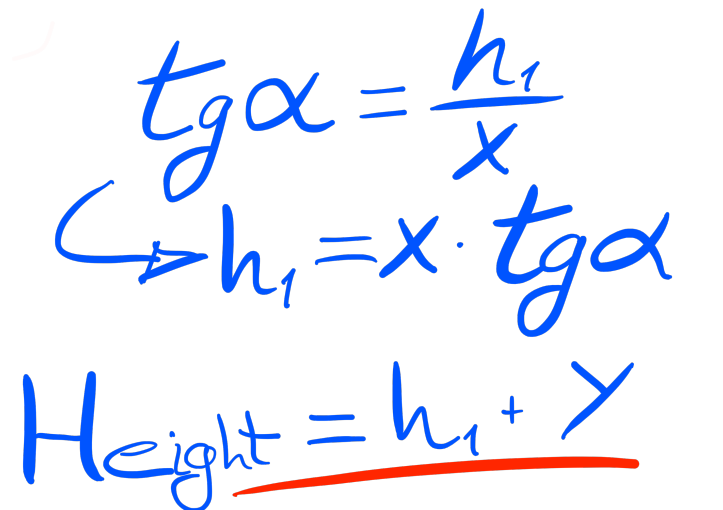 tgα = h₁/x
h₁ = x · tgα
Height = h₁ + y